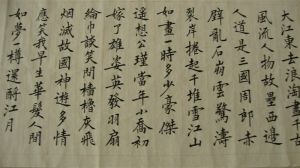 大江東去浪淘盡千
風流人物故壘西邊
人道是三國周郎赤
壁亂石崩雲驚濤
裂岸捲起千堆雪江山
如畫一時多少豪傑
遙想公瑾當年小喬初
嫁了雄姿英發羽扇
綸巾談笑間檣櫓灰飛
煙滅故國神遊多情
應笑我早生華髮人間
如夢一樽還酹江月